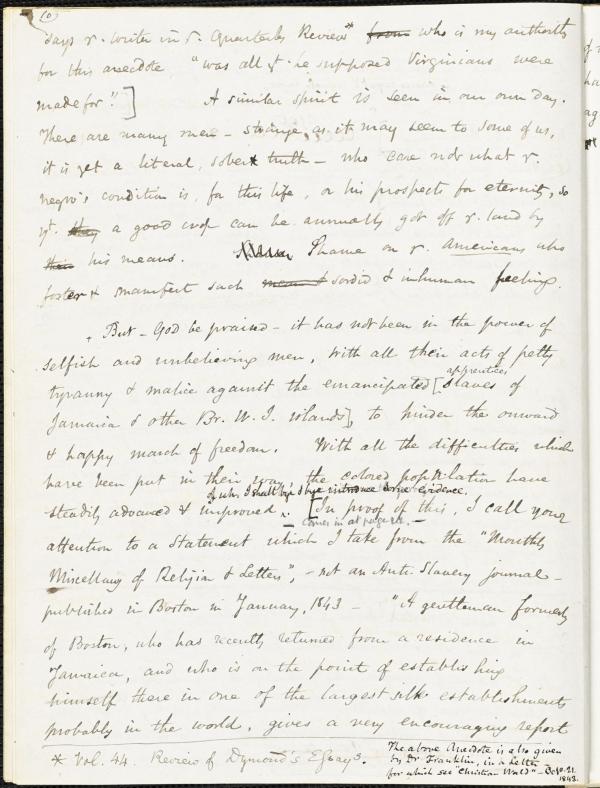 (6)
says ye. writer in ye. Quarterly Review* from who is my authority
for this anecdote "was all yt. he supposed Virginians were
made for."] A similar spirit is seen in our own day.
There are many men - strange, as it may seem to some of us,
it is yet a literal, sober truth - who care not what ye.
negro's condition is, for this life, or his prospects for eternity, so
yt. they a good crop can be annually got off ye. land by
their his means. Shame on ye. Americans who
foster & manifest such sordid & inhuman feeling.
But - God be praised - it has not been in the power of
selfish and unbelieving men, with all their acts of petty
tyranny & malice against the emancipated [slaves of
apprentices
Jamaica & other Br. W. I. islands], to hinder the onward
& happy march of freedom. With all the difficulties which
have been put in their way, the colored population have
of wh. I shall by & bye introduce some evidence.
steadily advanced & improved. [In proof of this, I call your
comes in at page
attention to a statement which I take from the "Monthly
Miscellany of Religion & Letters", - not an Anti-Slavery journal -
published in Boston in January, 1843 - "A gentleman formerly
of Boston, who has recently returned from a residence in
Jamaica, and who is on the point of establishing
himself there in one of the largest silk establishments
probably in the world, gives a very encouraging report
* Vol. 44. Review of Dymond's Essays.
The above Anecdote is also given
by Dr. Franklin, in a letter
for which see "Christian World" - Oct. 21.
1843.